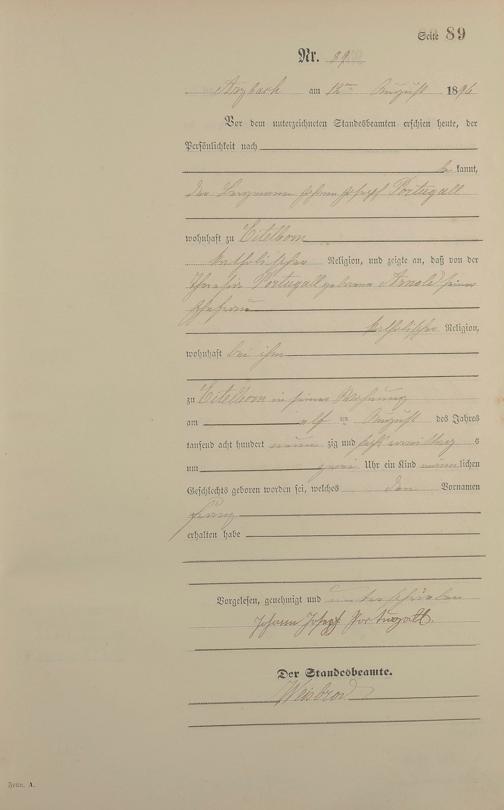 Seite 89
Nr. 89
Arzbach am 12ten August 1896
Vor dem unterzeichneten Standesbeamten erschien heute, der
Persönlichkeit nach
be kannt,
der Bergmann Johann Joseph Portugall
wohnhaft zu Eitelborn
katholischer Religion, und zeigte an, daß von der
Portugall geborene Arnold seiner
Ehefrau
katholischer Religion,
wohnhaft bei ihm
zu Eitelborn in seiner Wohnung
am elf ten August des Jahres
tausend acht hundert neun zig und sechs s
um zwei Uhr ein Kind männlichen
Geschlechts geboren worden sei, welches den Vornamen
Franz
erhalten habe
Vorgelesen, genehmigt und unterschrieben
Johann Josepf Portugall.
Der Standesbeamte.
Weisbrod
Form. A.